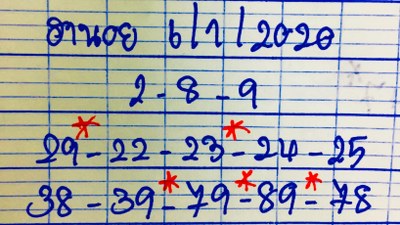 ฮานอย 6/1/2020
2-8-9
29*-22-23*-24-25
38-39*-79*-89*-78